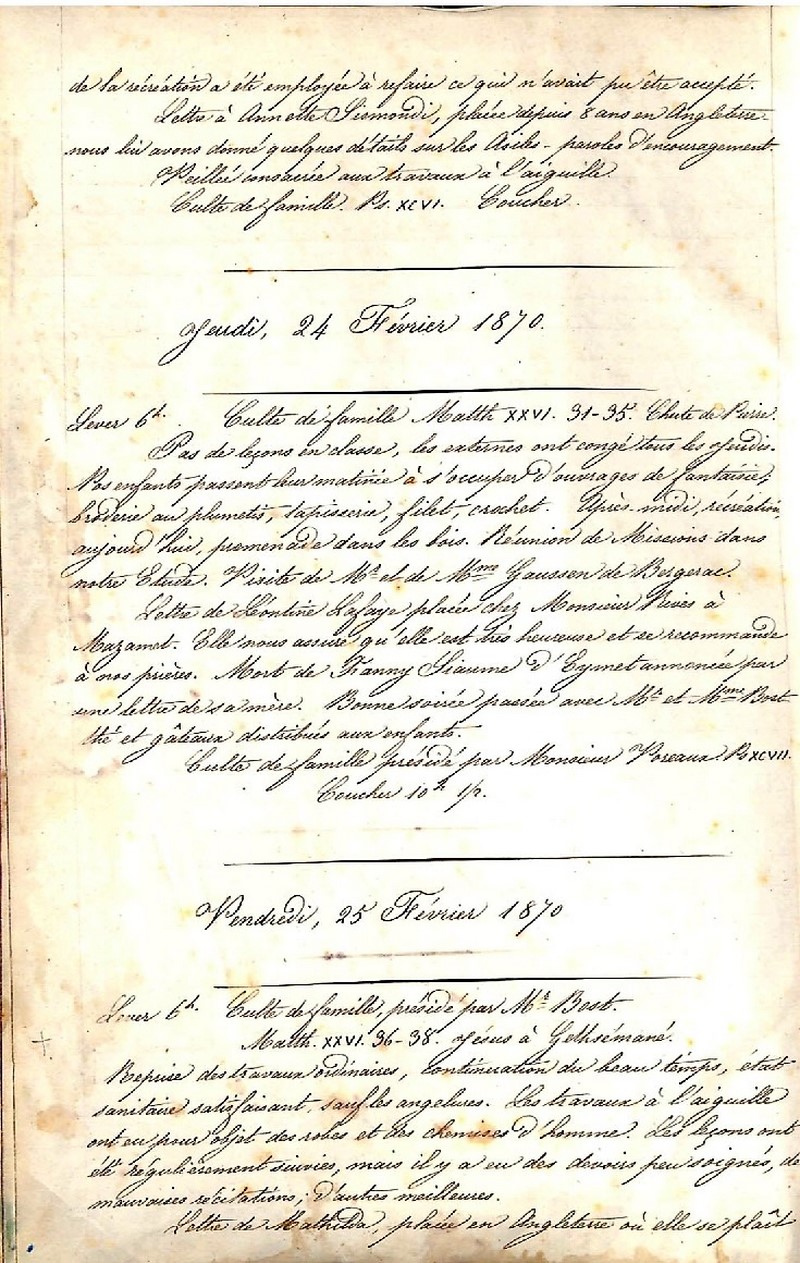 de la récréation a été employée à refaire ce qui n'avait pu être accepté.
Lettre à Annette Sismondi, placée depuis 8 ans en Angleterre -
nous lui avons donné quelques détails sur les Asiles - paroles d'encouragement.
Veillée consacrée aux travaux à l'aiguille.
Culte de famille. Ps. XCVI. Coucher.
Jeudi, 24 Février 1870.
Lever 6h. Culte de famille Matth XXVI. 31-35. Chute de Pierre.
Pas de leçons en classe, les externes ont congé tous les Jeudis.
Nos enfants passent leur matinée à s'occuper d'ouvrages de fantaisie;
broderie au plumetis, tapisserie, filet, crochet. Après-midi, récréation,
aujourd'hui, promenade dans les bois. Réunion de Missions dans
notre Etude. Visite de Mr et de Mme Gaussen de Bergerac.
Lettre de Léontine Lafaye placée chez Monsieur Vivès à
Mazamet. Elle nous assure qu'elle est très heureuse et se recommande
à nos prières. Mort de Fanny d'Eymet annoncée par
une lettre de sa mère. Bonne soirée passée avec Mr et Mme Bost
thé et gâteaux distribués aux enfants.
Culte de famille présidé par Monsieur Ps XCVII.
Coucher 10h 1/2.
Vendredi, 25 Février 1870
Lever 6h. Culte de famille, présidé par Mr Bost.
Matth. XXVI. 36-38. Jésus à Gethsémané.
Reprise des travaux ordinaires, continuation du beau temps, état
sanitaire satisfaisant, sauf les angelures. Les travaux à l'aiguille
ont eu pour objet des robes et des chemises d'homme. Les leçons ont
été régulièrement suivies, mais il y a eu des devoirs peu soignés, de
mauvaises récitations; d'autres meilleures.
Lettre de Mathilda, placée en Angleterre où elle se plaît